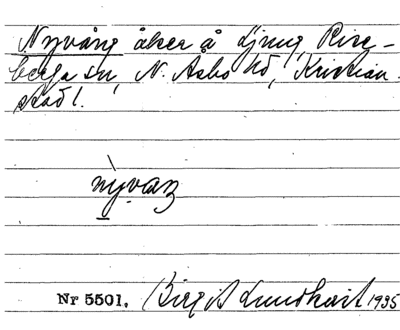 Nyvång åker å Ljung, Rise-
berga sn, N. Åsbo hd, Kristian-
stad l.
nỳvaŋ
Nr 5501. Birgit Lundkvist 1935